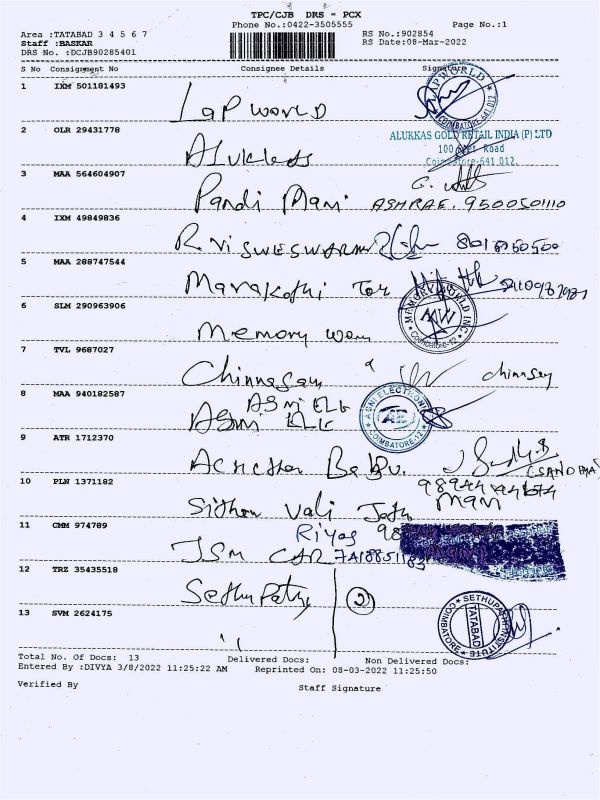 TPC/CJB DRS = PCX
Phone No.:0422-3505555
Page No.:1
Area :TATABAD 3 4 5 6 7
RS No.:902854
Staff :BASKAR
RS Date:08-Mar-2022
DRS No. :DCJB90285401
S No Consignment No Consignee Details Signature
1 IXM 501181493
Lap world
LAPWORLD
COIMBATORE-641 012
2 OLR 29431778
ALUKKAS GOLD RETAIL INDIA (P) LTD
100 Feet Road
Coimbatore-641 012.
3 MAA 564604907
Pandi Mani ASHRAE. 9500501110
4 IXM 49849836
R. Visweswaran
5 MAA 288747544
6 SLM 290963906
Memory
MEMORY WORLD INC
MW
Coimbatore-12
7 TVL 9687027
8 MAA 940182587
Agni Ele
Agni Ele
AGNI ELECTRONIC
AE
COIMBATORE-12
9 ATR 1712370
Babu.
10 PLN 1371182
Mani
11 CMM 974789
Riyas
JSM CAR
12 TRZ 35435518
Sethu Pathy 2
13 SVM 2624175
"
COIMBATORE
TATABAD
Total No. Of Docs: 13 Delivered Docs: Non Delivered Docs:
Entered By :DIVYA 3/8/2022 11:25:22 AM Reprinted On: 08-03-2022 11:25:50
Verified By Staff Signature